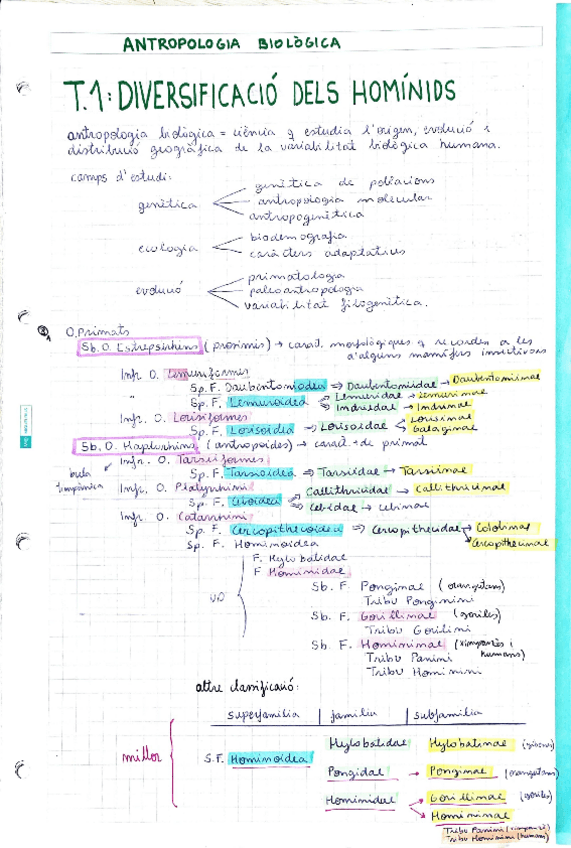 ANTROPOLOGIA BIOLÒGICA
T.1: DIVERSIFICACIÓ DELS HOMÍNIDS
antropologia biològica = ciència q estudia l'origen, evolució i
distribució geogràfica de la variabilitat biològica humana.
camps d'estudi:
genètica
genètica de poblacions
antropologia molecular
antropogenètica
ecologia
biodemografia
caràcters adaptatius
evolució
primatologia
paleoantropologia
variabilitat filogenètica.
O. Primats
Sb. O. Estrepsirhins (prosimis) → caract. morfològiques q recorden a les
d'alguns mamífers insectívors
Infr O. Lemuriformes
Sp. F. Daubentonioidea ⇒ Daubentoniidae → Daubentoniinae
" Sp. F. Lemuroidea ⇒ Lemuridae → Lemurinae
⇒ Indriidae → Indriinae
Infr O. Lorisiformes
Sp. F. Lorisoidia ⇒ Lorisoidae → Lorisinae
Galaginae
Sb. O. Haplorhins (antropoides) → caract. + de primat
Infr O. Tarsiiformes
bula
timpànica
Sp. F. Tarsioidea ⇒ Tarsiidae → Tarsiinae
Infr O. Platyrrhini
Sp. F. Ceboidea ⇒ Callithricidae → Callithricinae
⇒ Cebidae → Cebinae
Infr O. Catarrhini
Sp. F. Cercopithecoidea ⇒ Cercopithecidae → Colobinae
→ Cercopithecinae
Sp. F. Hominoidea
F. Hylobatidae
F. Hominidae
Sb. F. Ponginae (orangutans)
Tribu Ponginini
Sb. F. Gorillinae (goril·les)
Tribu Gorilini
Sb. F. Homininae (ximpanzés i
humans)
Tribu Panini
Tribu Hominini
altre classificació:
superfamilia | familia | subfamilia
millor
S.F. Hominoidea
Hylobatidae Hylobatinae (gibons)
Pongidae → Ponginae (orangutans)
Hominidae → Gorillinae (goril·les)
→ Homininae
Tribu Panini (ximpanzé)
Tribu Hominini (humans)